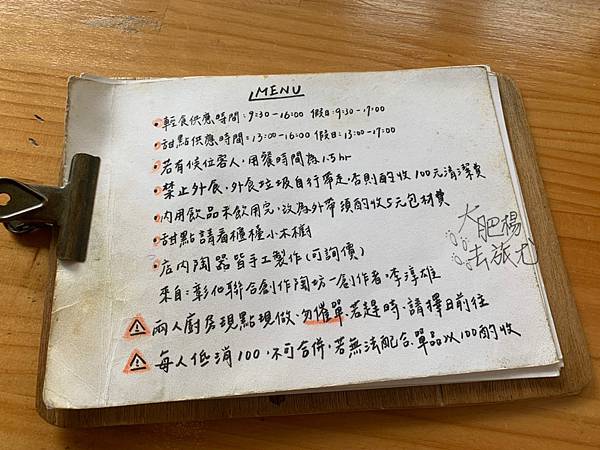 MENU
•輕食供應時間:9:30-16:00 假日:9:30-17:00
•甜點供應時間:13:00-16:00 假日:13:00-17:00
•若有候位客人,用餐時間為1.5hr
•禁止外食,外食垃圾自行帶走,否則酌收100元清潔費
•內用飲品未飲用完,改為外帶須酌收5元包材費
•甜點請看櫃檯小木櫥
•店內陶器皆手工製作(可詢價)
來自:彰化聯合創作陶坊-創作者,李淳雄
⚠兩人廚房現點現做,勿催單,若趕時,請擇日前往
⚠每人低消100,不可合併,若無法配合,單品以100酌收
大肥楊
去旅尤